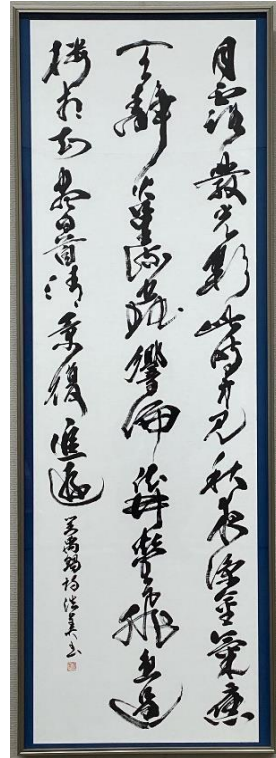 月露發光彩此時方見秋夜涼金氣應
天靜火星流蛩響偏依井螢飛直過
樓相知盡白首清景復追遊
劉禹錫詩